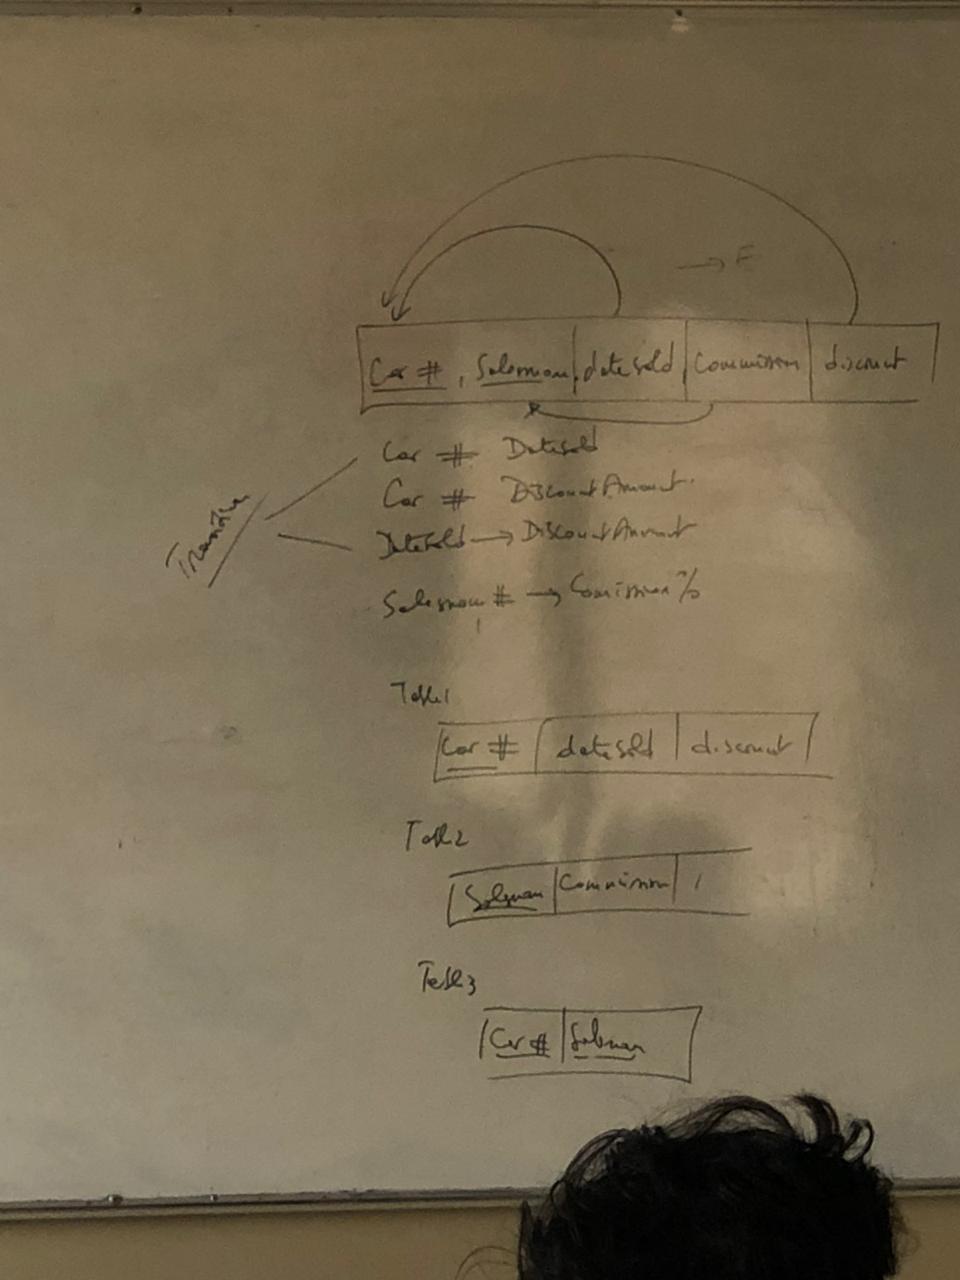 → F
Car #, Salesman, dateSold, Commission discount
Car # DateSold
Car # Discount Amount.
DateSold → Discount Amount
Salesman # → Comission %
Table1
Car # dateSold discount
Table2
Salesman Commission
Table3
Car # Salesman